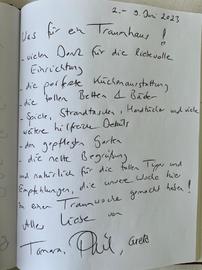 2. - 9. Juni 2023
Was für ein Traumhaus!
- vielen Dank für die liebevolle
Einrichtung
- die perfekte Küchenausstattung
- die tollen Betten & Bäder
- Spiele, Strandtaschen, Handtücher und viele
weitere hilfreiche Details
- den gepflegten Garten
- die nette Begrüßung
und natürlich für die tollen Tipps und
Empfehlungen, die unsere Woche hier
zu einer Traumwoche gemacht haben!
Alles Liebe von
Tamara, Phil,